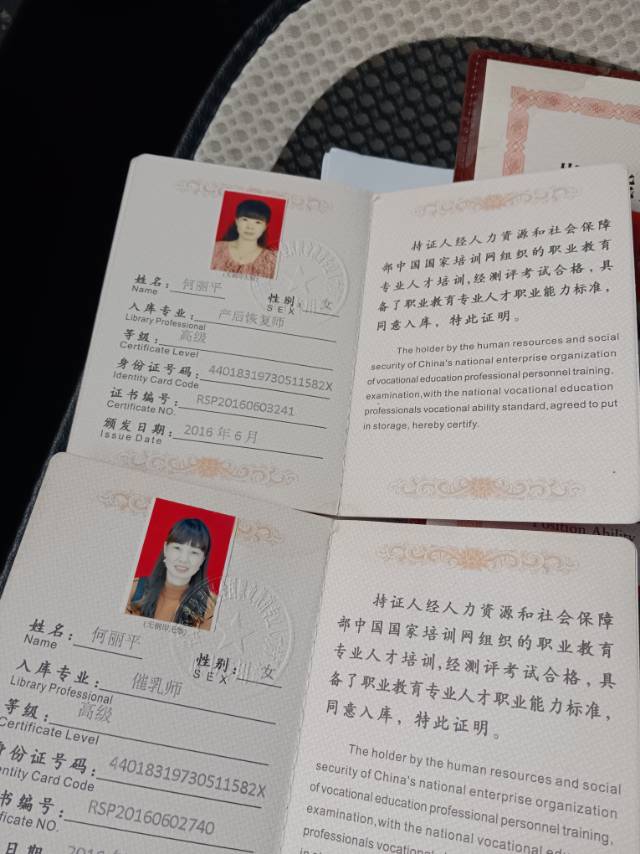 姓名：何丽平
Name
性别：女
SEX
入库专业：产后恢复师
Library Professional
等级：高级
Certificate Level
身份证号码：44018319730511582X
Identity Card Code
证书编号：RSP20160603241
Certificate NO.
颁发日期：2016 年 6 月
Issue Date
持证人经人力资源和社会保障
部中国国家培训网组织的职业教育
专业人才培训，经测评考试合格，具
备了职业教育专业人才职业能力标准，
同意入库，特此证明。
The holder by the human resources and social
security of China's national enterprise organization
of vocational education professional personnel training,
examination,with the national vocational education
professionals vocational ability standard, agreed to put
in storage, hereby certify.
Position Ability
(无钢印无效)
姓名：何丽平
Name
性别：女
SEX
入库专业：催乳师
Library Professional
等级：高级
Certificate Level
身份证号码：44018319730511582X
Identity Card Code
书编号：RSP20160602740
ertificate NO.
持证人经人力资源和社会保障
部中国国家培训网组织的职业教育
专业人才培训，经测评考试合格，具
备了职业教育专业人才职业能力标准，
同意入库，特此证明。
The holder by the human resources and social
security of China's national enterprise organization
of vocational education professional personnel training,
examination,with the national vocational educa
professionals vocational ability standard, agreed